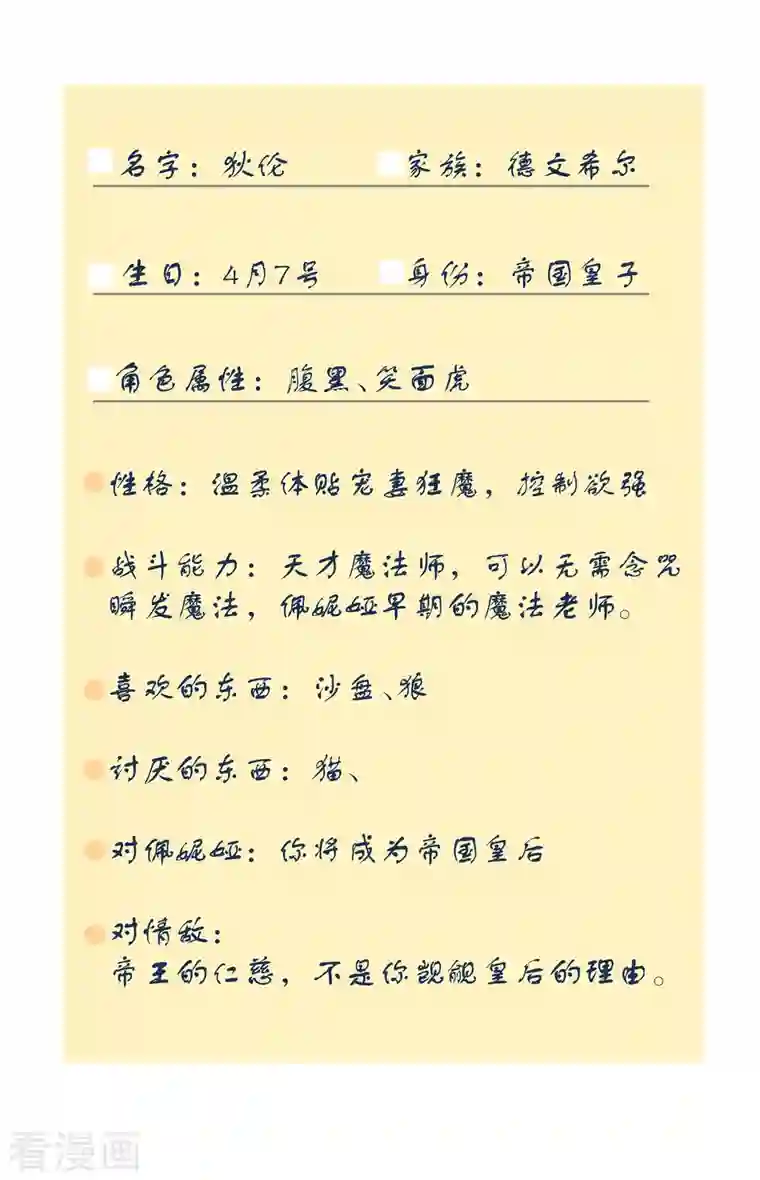 名字：狄伦 家族：德文希尔
生日：4月7号 身份：帝国皇子
角色属性：腹黑、笑面虎
性格：温柔体贴宠妻狂魔，控制欲强
战斗能力：天才魔法师，可以无需念咒
瞬发魔法，佩妮娅早期的魔法老师。
喜欢的东西：沙盘、狼
讨厌的东西：猫、
对佩妮娅：你将成为帝国皇后
对情敌：
帝王的仁慈，不是你觊觎皇后的理由。
看漫画